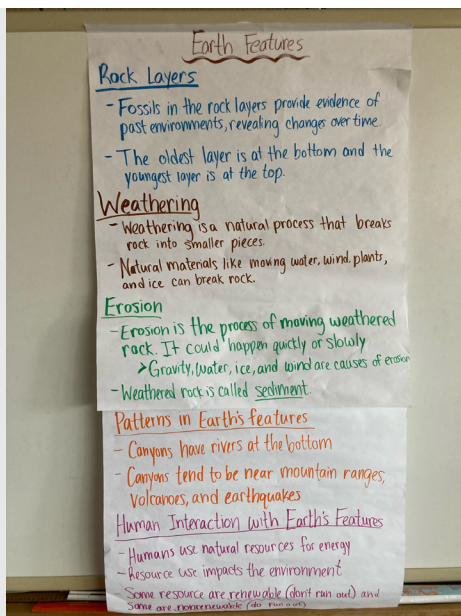 Earth Features
Rock Layers
- Fossils in the rock layers provide evidence of
past environments, revealing changes over time.
- The oldest layer is at the bottom and the
youngest layer is at the top.
Weathering
- Weathering is a natural process that breaks
rock into smaller pieces.
- Natural materials like moving water, wind, plants,
and ice can break rock.
Erosion
- Erosion is the process of moving weathered
rock. It could happen quickly or slowly
> Gravity, water, ice, and wind are causes of erosion
- Weathered rock is called sediment.
Patterns in Earth's features
- Canyons have rivers at the bottom
- Canyons tend to be near mountain ranges,
volcanoes, and earthquakes
Human Interaction with Earth's Features
- Humans use natural resources for energy
- Resource use impacts the environment
Some resource are renewable (don't run out) and
some are nonrenewable (do run out)